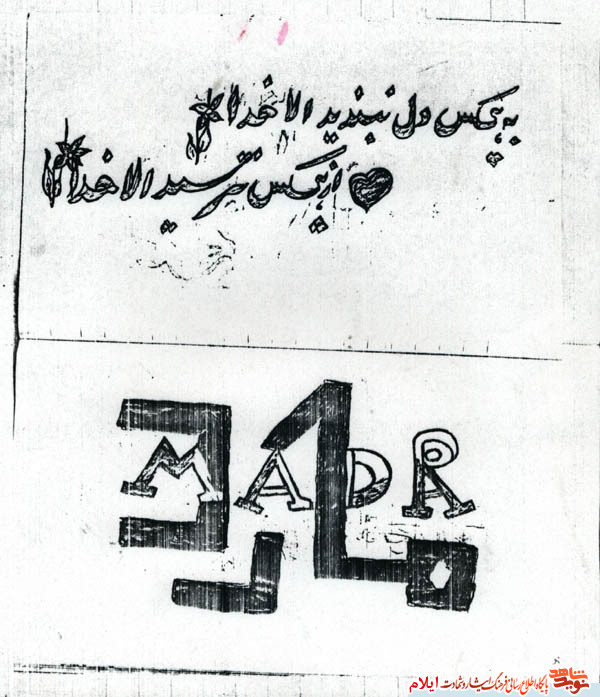 به هیچکس دل نبندید الا خدا
از هیچکس نترسید الا خدا
MADR
مادر
نوید شاهد پایگاه اطلاع رسانی فرهنگ ایثار و شهادت ایلام